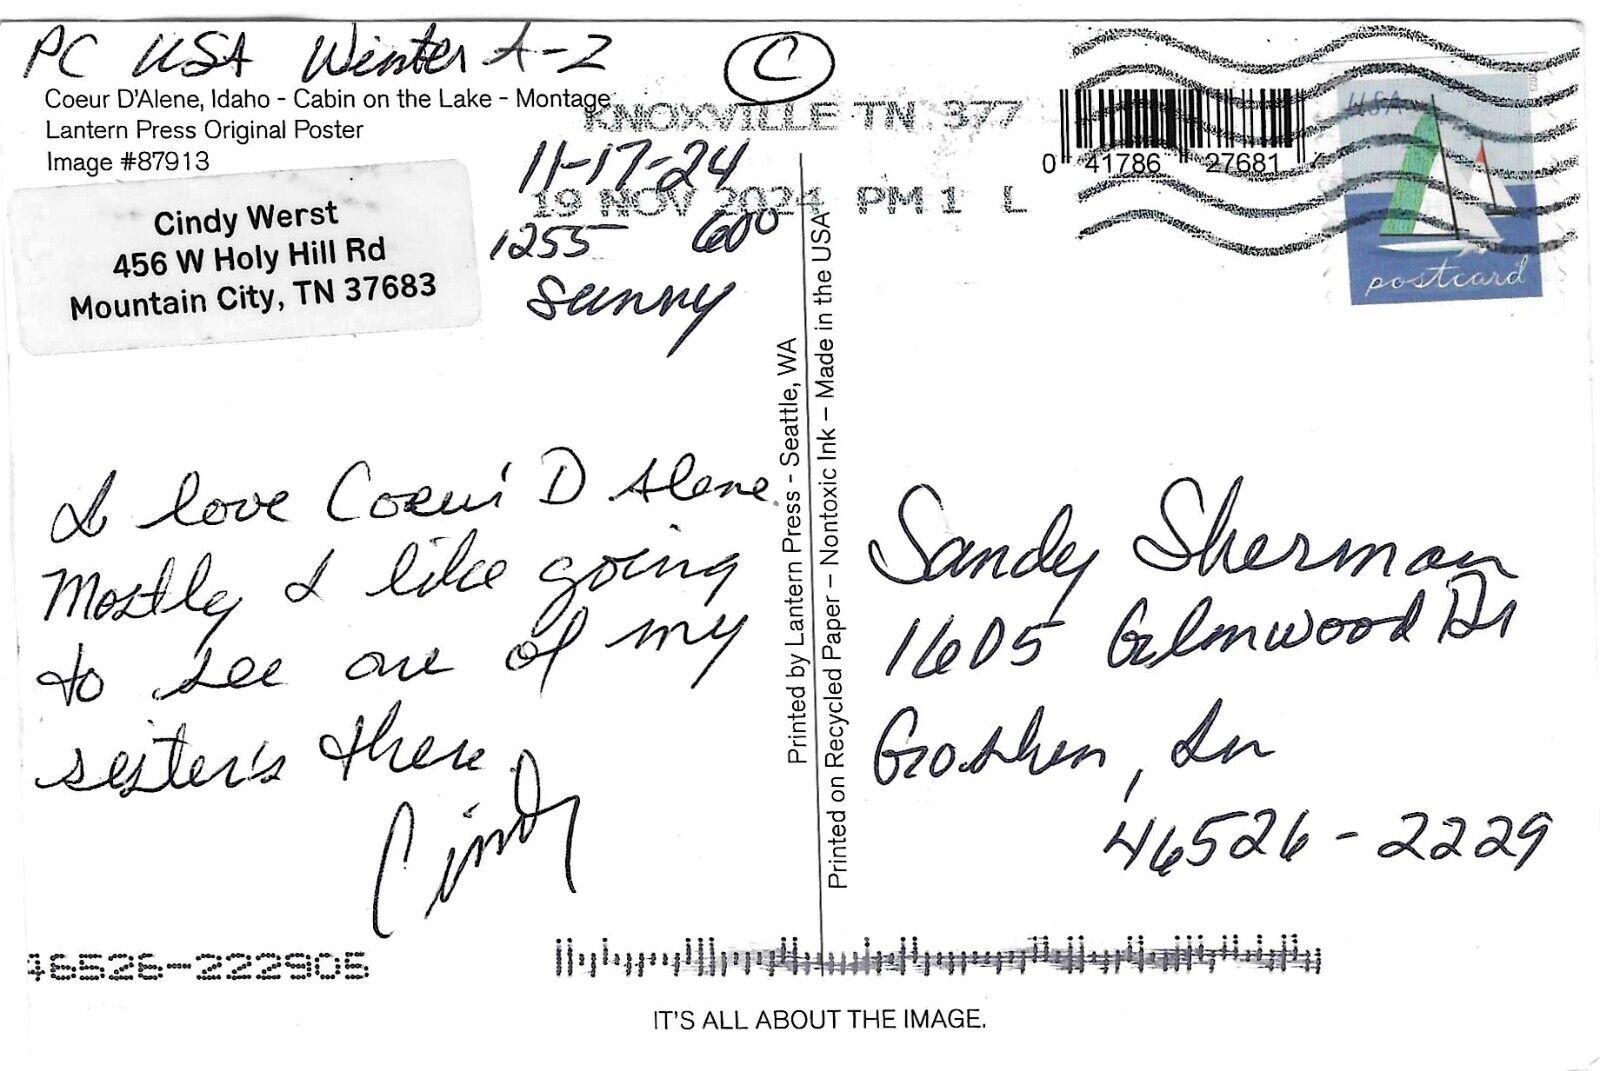 PC USA Winter A-Z
C
Coeur D'Alene, Idaho - Cabin on the Lake - Montage
Lantern Press Original Poster
Image #87913
KNOXVILLE TN 377
19 NOV 2024 PM 1 L
0 41786 27681
USA
postcard
Cindy Werst
456 W Holy Hill Rd
Mountain City, TN 37683
11-17-24
1255 60°
Sunny
I love Coeur D Alene.
Mostly I like going
to see one of my
sister's there
Cindy
Printed by Lantern Press - Seattle, WA
Printed on Recycled Paper – Nontoxic Ink – Made in the USA
Sandy Sherman
1605 Glenwood Dr
Goshen, In
46526-2229
46526-222905
IT'S ALL ABOUT THE IMAGE.